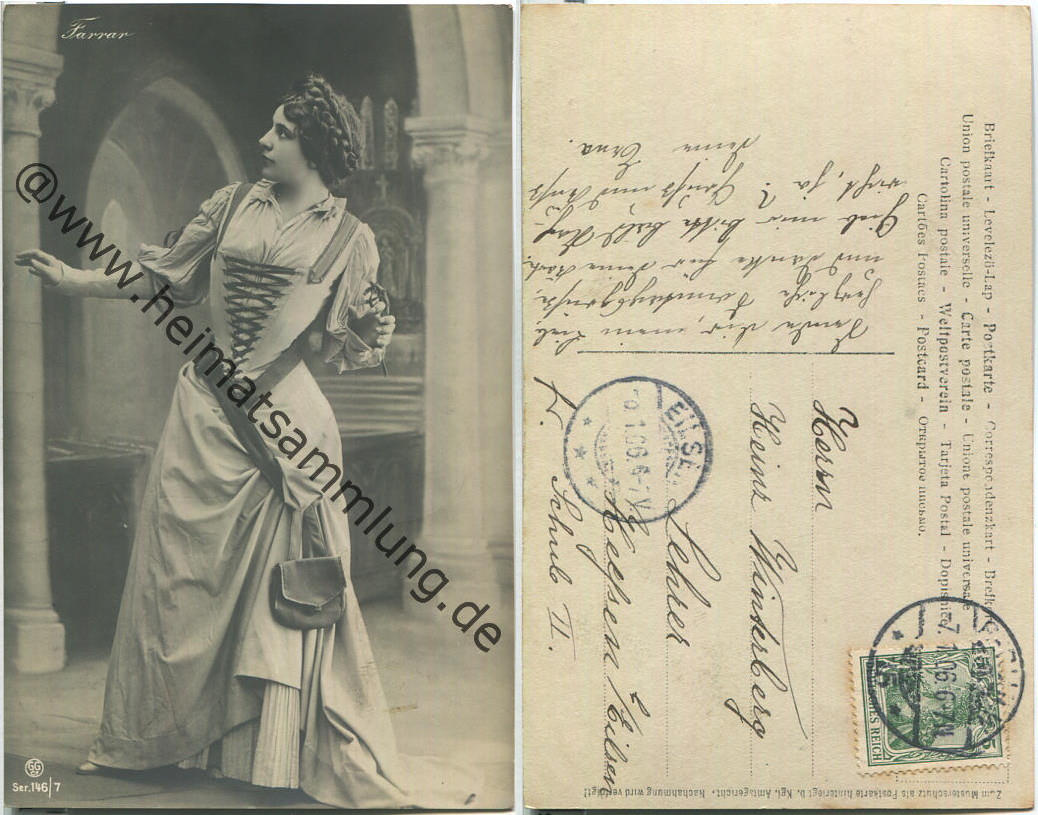 Farrar
@www.heimatsammlung.de
GG Co
Ser. 146/7
Briefkaart - Levelező-Lap - Postkarte - Correspondenzkart - Brefk
Union postale universelle - Carte postale - Unione postale universale
Cartolina postale - Weltpostverein - Tarjeta Postal - Dopisnice
Cartões Postaes - Postcard - Открытое письмо.
Herrn
Heinr Winterberg
Lehrer
Heessen Eilsen
Schule II.
Danke dir, mein Lieb,
herzliche Sonntagsgrüße,
und danke für deine Kart.
Gieb mir bitte bald
nicht, ja? Gruß und Kuß
deine Erna.
EILSE
6-7N
7.1.06.6-7N
5
HES REICH
Zum Musterschutz als Postkarte hinterlegt b. Kgl. Amtsgericht. Nachahmung wird verfolgt!